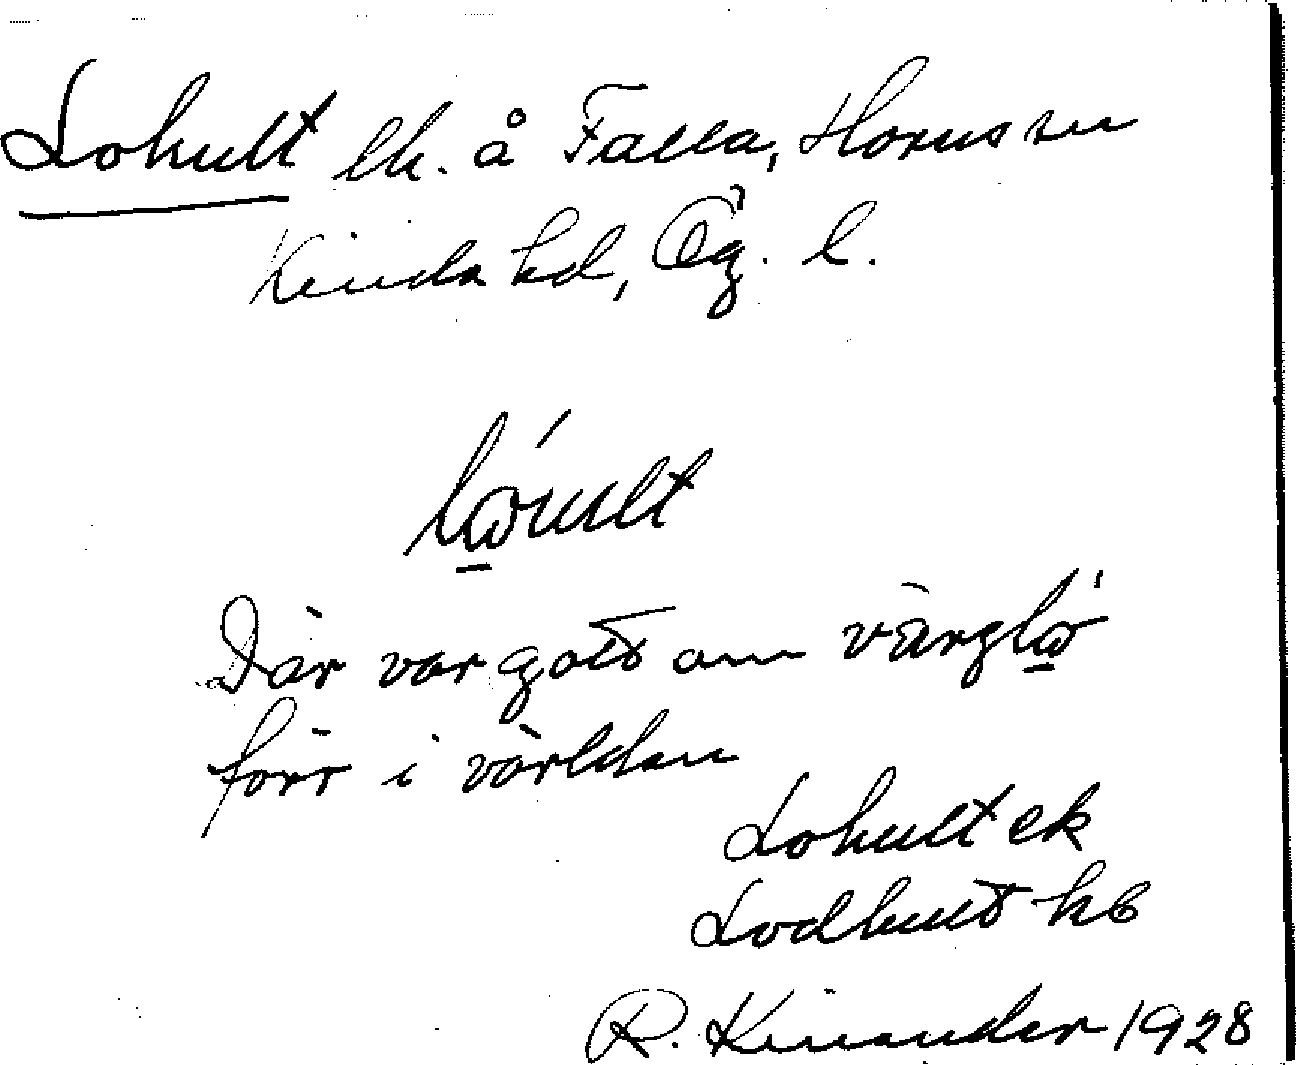 Lohult lh. å Falla, Horns sn
Kinda hd, Ög. l.
Där var gott om värglo
förr i världen
Lohult ek
Lodhult kb
R. Kinander 1928